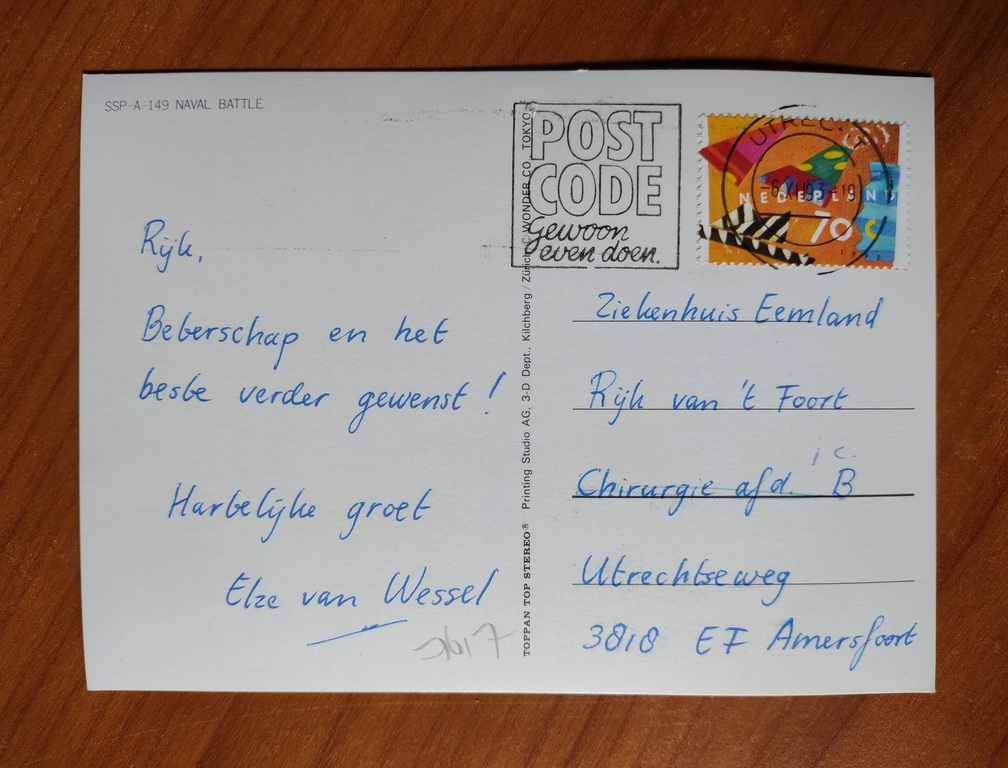 SSP-A-149 NAVAL BATTLE
Rijk,
Beterschap en het
beste verder gewenst!
Hartelijke groet
Elze van Wessel
TOPPAN TOP STEREO® Printing Studio AG. 3-D Dept., Kilchberg / Zürich © WONDER CO. TOKYO
POST
CODE
Gewoon
even doen.
UTRECHT
NEDERLAND
70 c
Ziekenhuis Eemland
Rijk van 't Foort
i c.
Chirurgie afd. B
Utrechtseweg
3818 EF Amersfoort